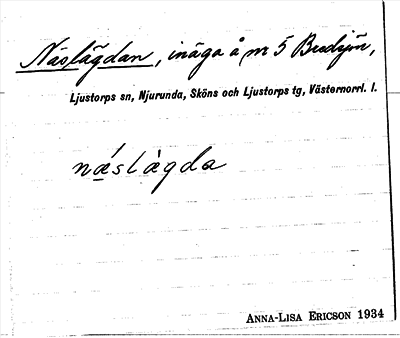 Näslägdan, inäga å m 5 Bredsjön,
Ljustorps sn, Njurunda, Sköns och Ljustorps tg, Västernorrl. l.
nä́slä̀gda
ANNA-LISA ERICSON 1934